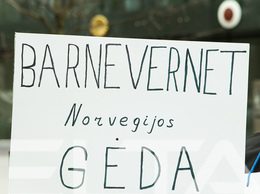 BARNEVERNET
Norvegijos
GĖDA